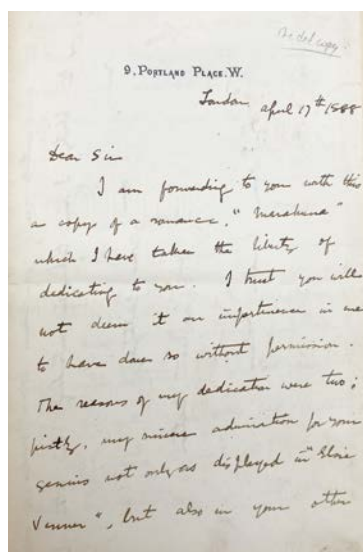 Bridel copy.
9. PORTLAND PLACE. W.
London April 17th 1888
Dear Sir
I am forwarding to you with this
a copy of a romance, "Marahuna"
which I have taken the liberty of
dedicating to you. I trust you will
not deem it an impertinence in me
to have done so without permission.
The reasons of my dedication were two;
firstly, my sincere admiration for your
genius not only as displayed in "Elsie
Venner", but also in your other